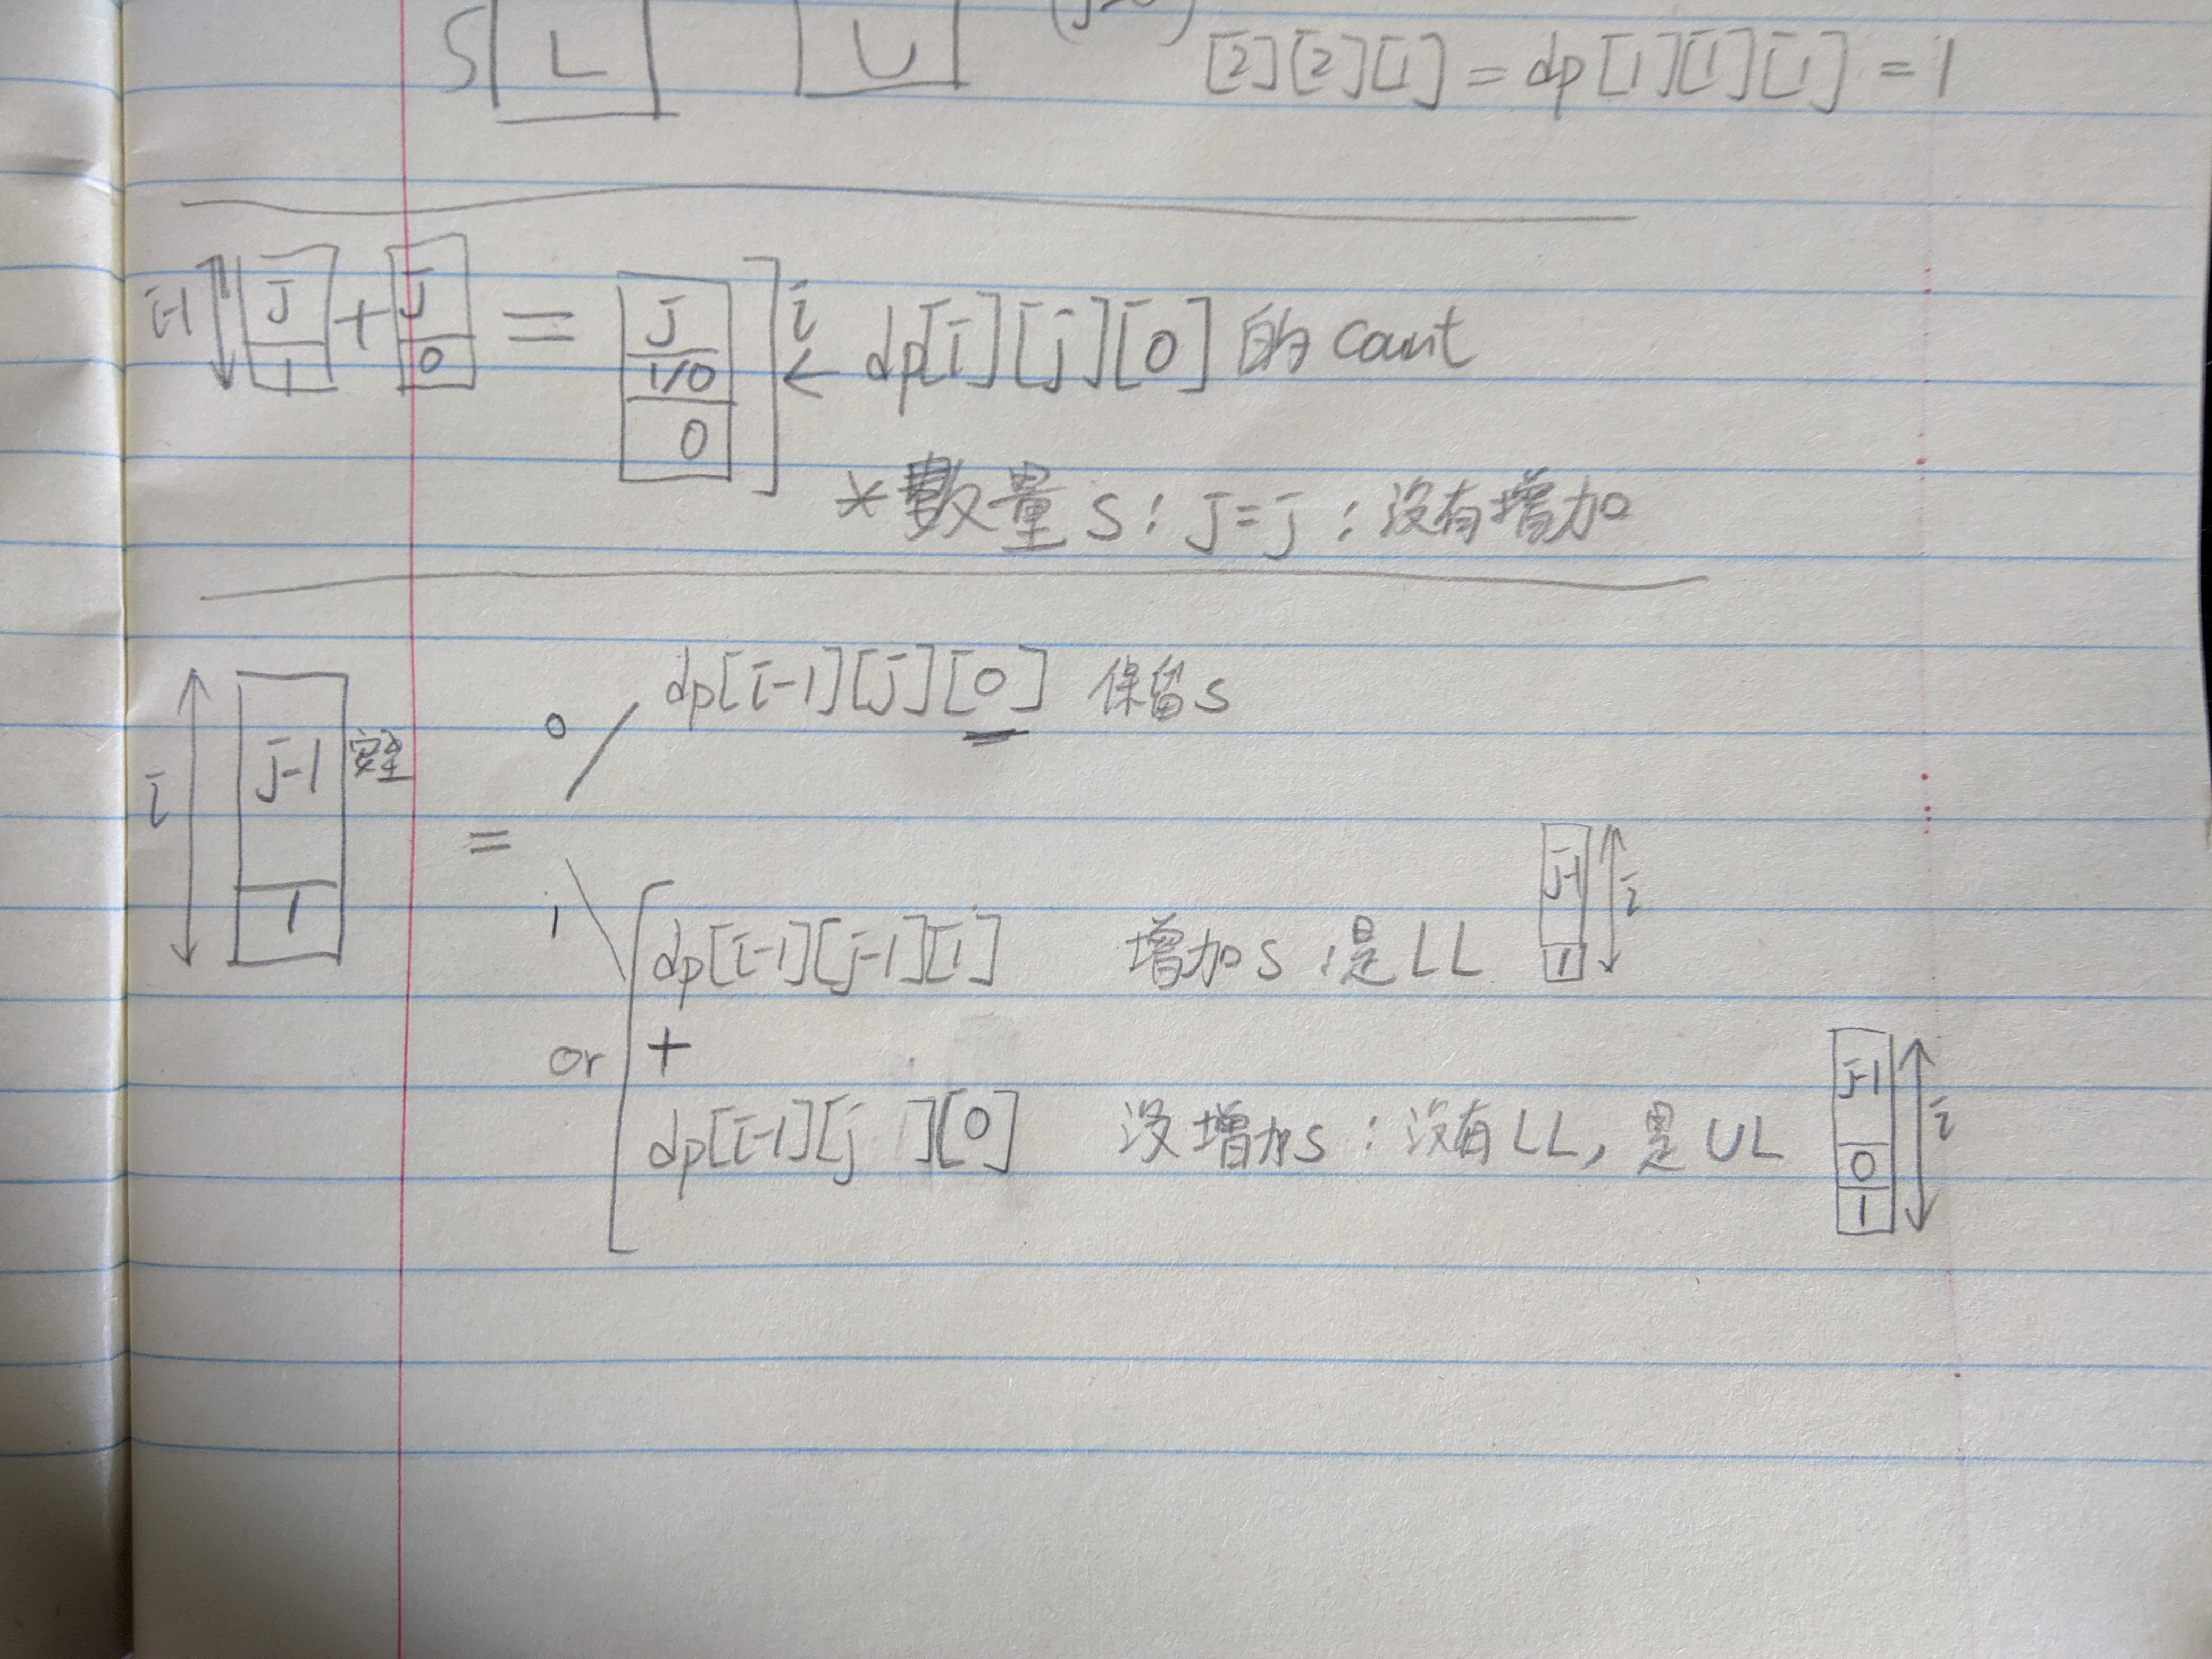 S L U
[2][2][1] = dp[1][1][1] = 1
i-1 j 1 + j 0 = j 1/0 0 i ← dp[i][j][0] 的 count
*數量 S : j=j : 沒有增加
0 dp[i-1][j][0] 保留 S
i j-1 安全 1 =
1 dp[i-1][j-1][1] 增加 S : 是 LL j-1 1 i
or +
dp[i-1][j ][0] 沒增加 S : 沒有 LL, 是 UL j-1 0 1 i